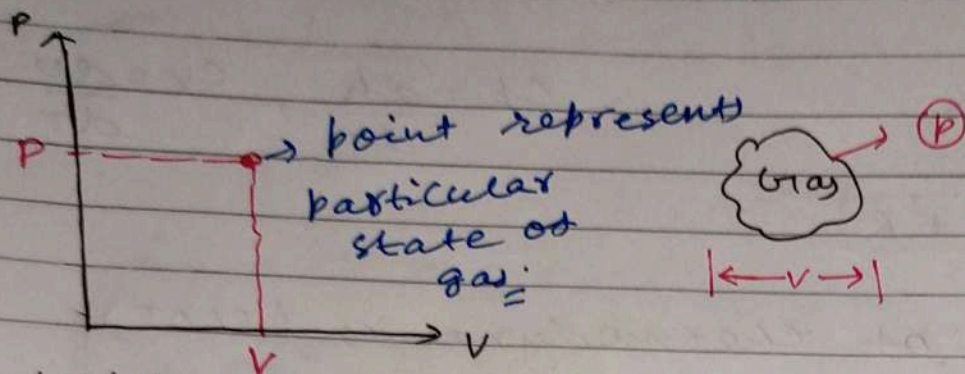 P
P
→ point represents
particular
state of
gas.
V
V
Gas
P
V